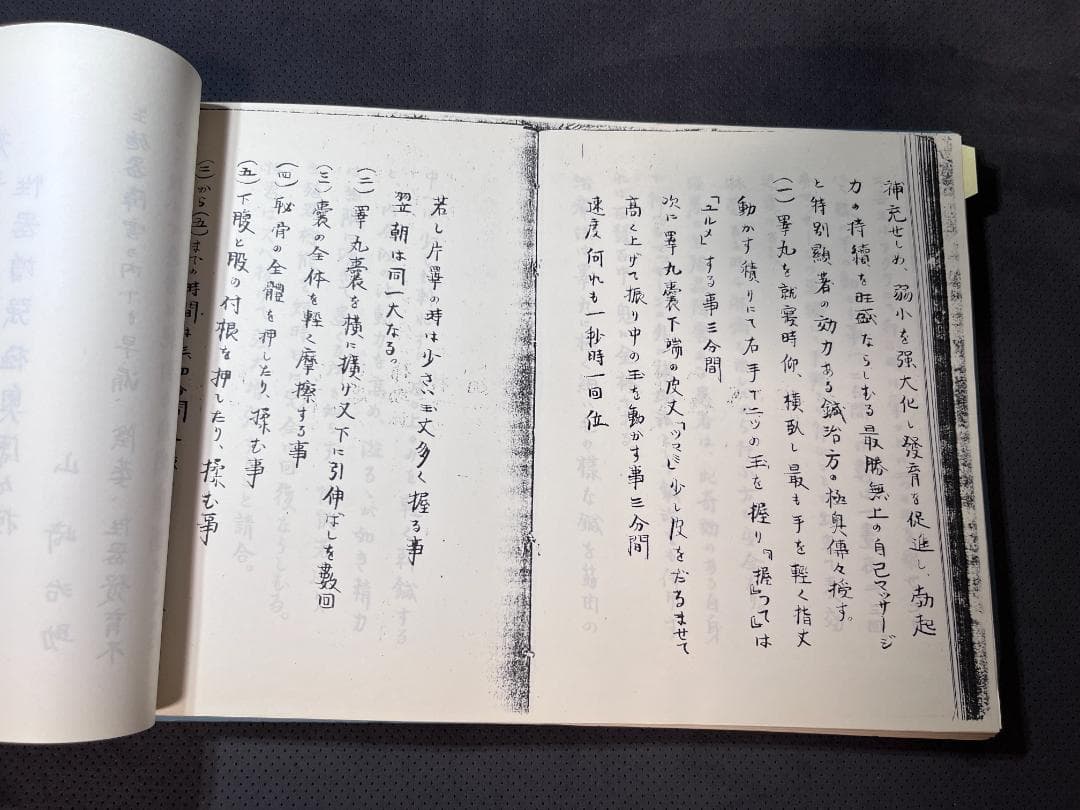 補充せしめ、弱小を强大化し發育を促進し、勃起
力の持続を旺盛ならしむる最勝無上の自己マッサージ
と特別顕著の効力ある鍼治方の極奥傳々授す。
(一) 睪丸を就寝時仰、横臥し最も手を軽く指丈
動かす積りにて右手で二ツの玉を握り『握』っては
『ユルメ』する事三分間
次に睪丸嚢下端の皮丈『ツマミ』少し皮をだるませて
高く上げて振り中の玉を動かす事三分間
速度何れも一秒時一回位
若し片睪の時は少さい玉丈多く握る事
翌朝は同一大なる。
(二) 睪丸嚢を横に擴げ又下に引伸ばしを数回
(三) 嚢の全体を軽く摩擦する事
(四) 恥骨の全體を押したり、揉む事
(五) 下腹と股の付根を押したり、揉む事
(三)から(五)までの時間は
山崎